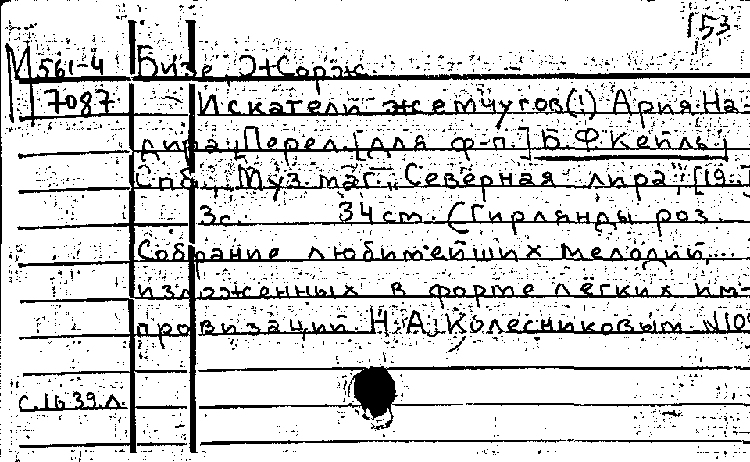 153
М 561-4 Бизе, Жорж.
7087 Искатели жемчугов(!) Ария На-
дира. Перел. [для ф-п.] Б. Ф. Кейль.
Спб., Муз. маг. „Северная лира", [19..]
3с. 34 cm. (Гирлянды роз.
Собрание любимейших мелодий,...
изложенных в форме лёгких им-
провизаций. Н. А. Колесниковым. N10
с.1639.л.